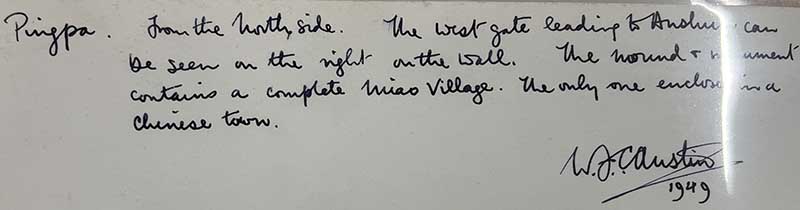 Pingpa. From the North, side. The west gate leading to Anshun can
be seen on the right on the wall. The mound + monument
contains a complete Miao Village. The only one enclosed in a
Chinese town.
W.J.C. Austin
1949